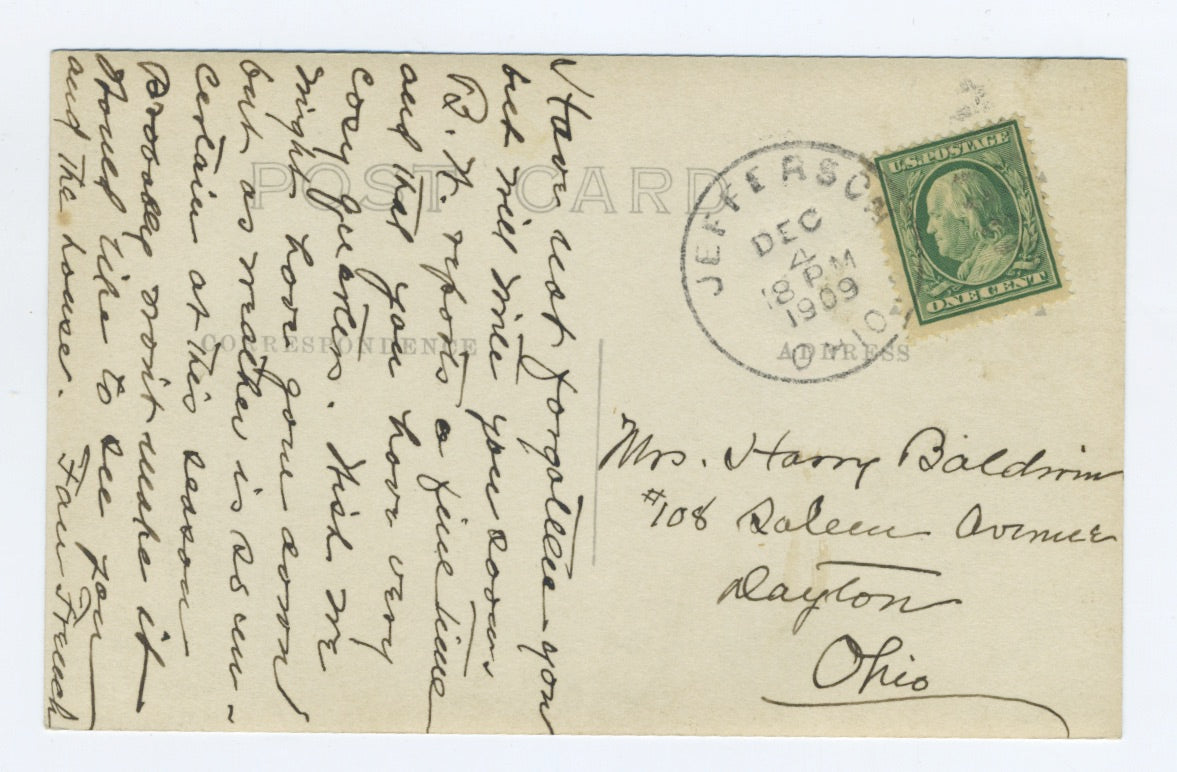 POST CARD
CORRESPONDENCE
ADDRESS
JEFFERSON
DEC
4
8 PM
1909
OHIO
U.S. POSTAGE
ONE CENT
Have not forgotten you
but will write you soon
B. N. reports a fine time
and that you have very
cozy quarters. Wish we
might have gone down
but as weather is so un-
certain at this season
Probably won't make it
Would like to see you
and the house. French
Mrs. Harry Baldwin
#108 Salem Avenue
Dayton
Ohio